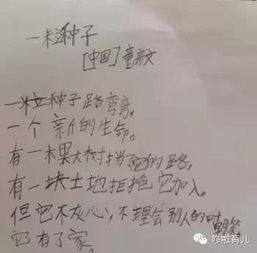 一粒种子
[中国]童新文
一粒种子路弯弯。
一个新的生命。
有一棵大树挡它的路,
有一块土地拒抱它加入。
但它不灰心,不理会别人的嘲笑。
它有了家。
哆啦育儿